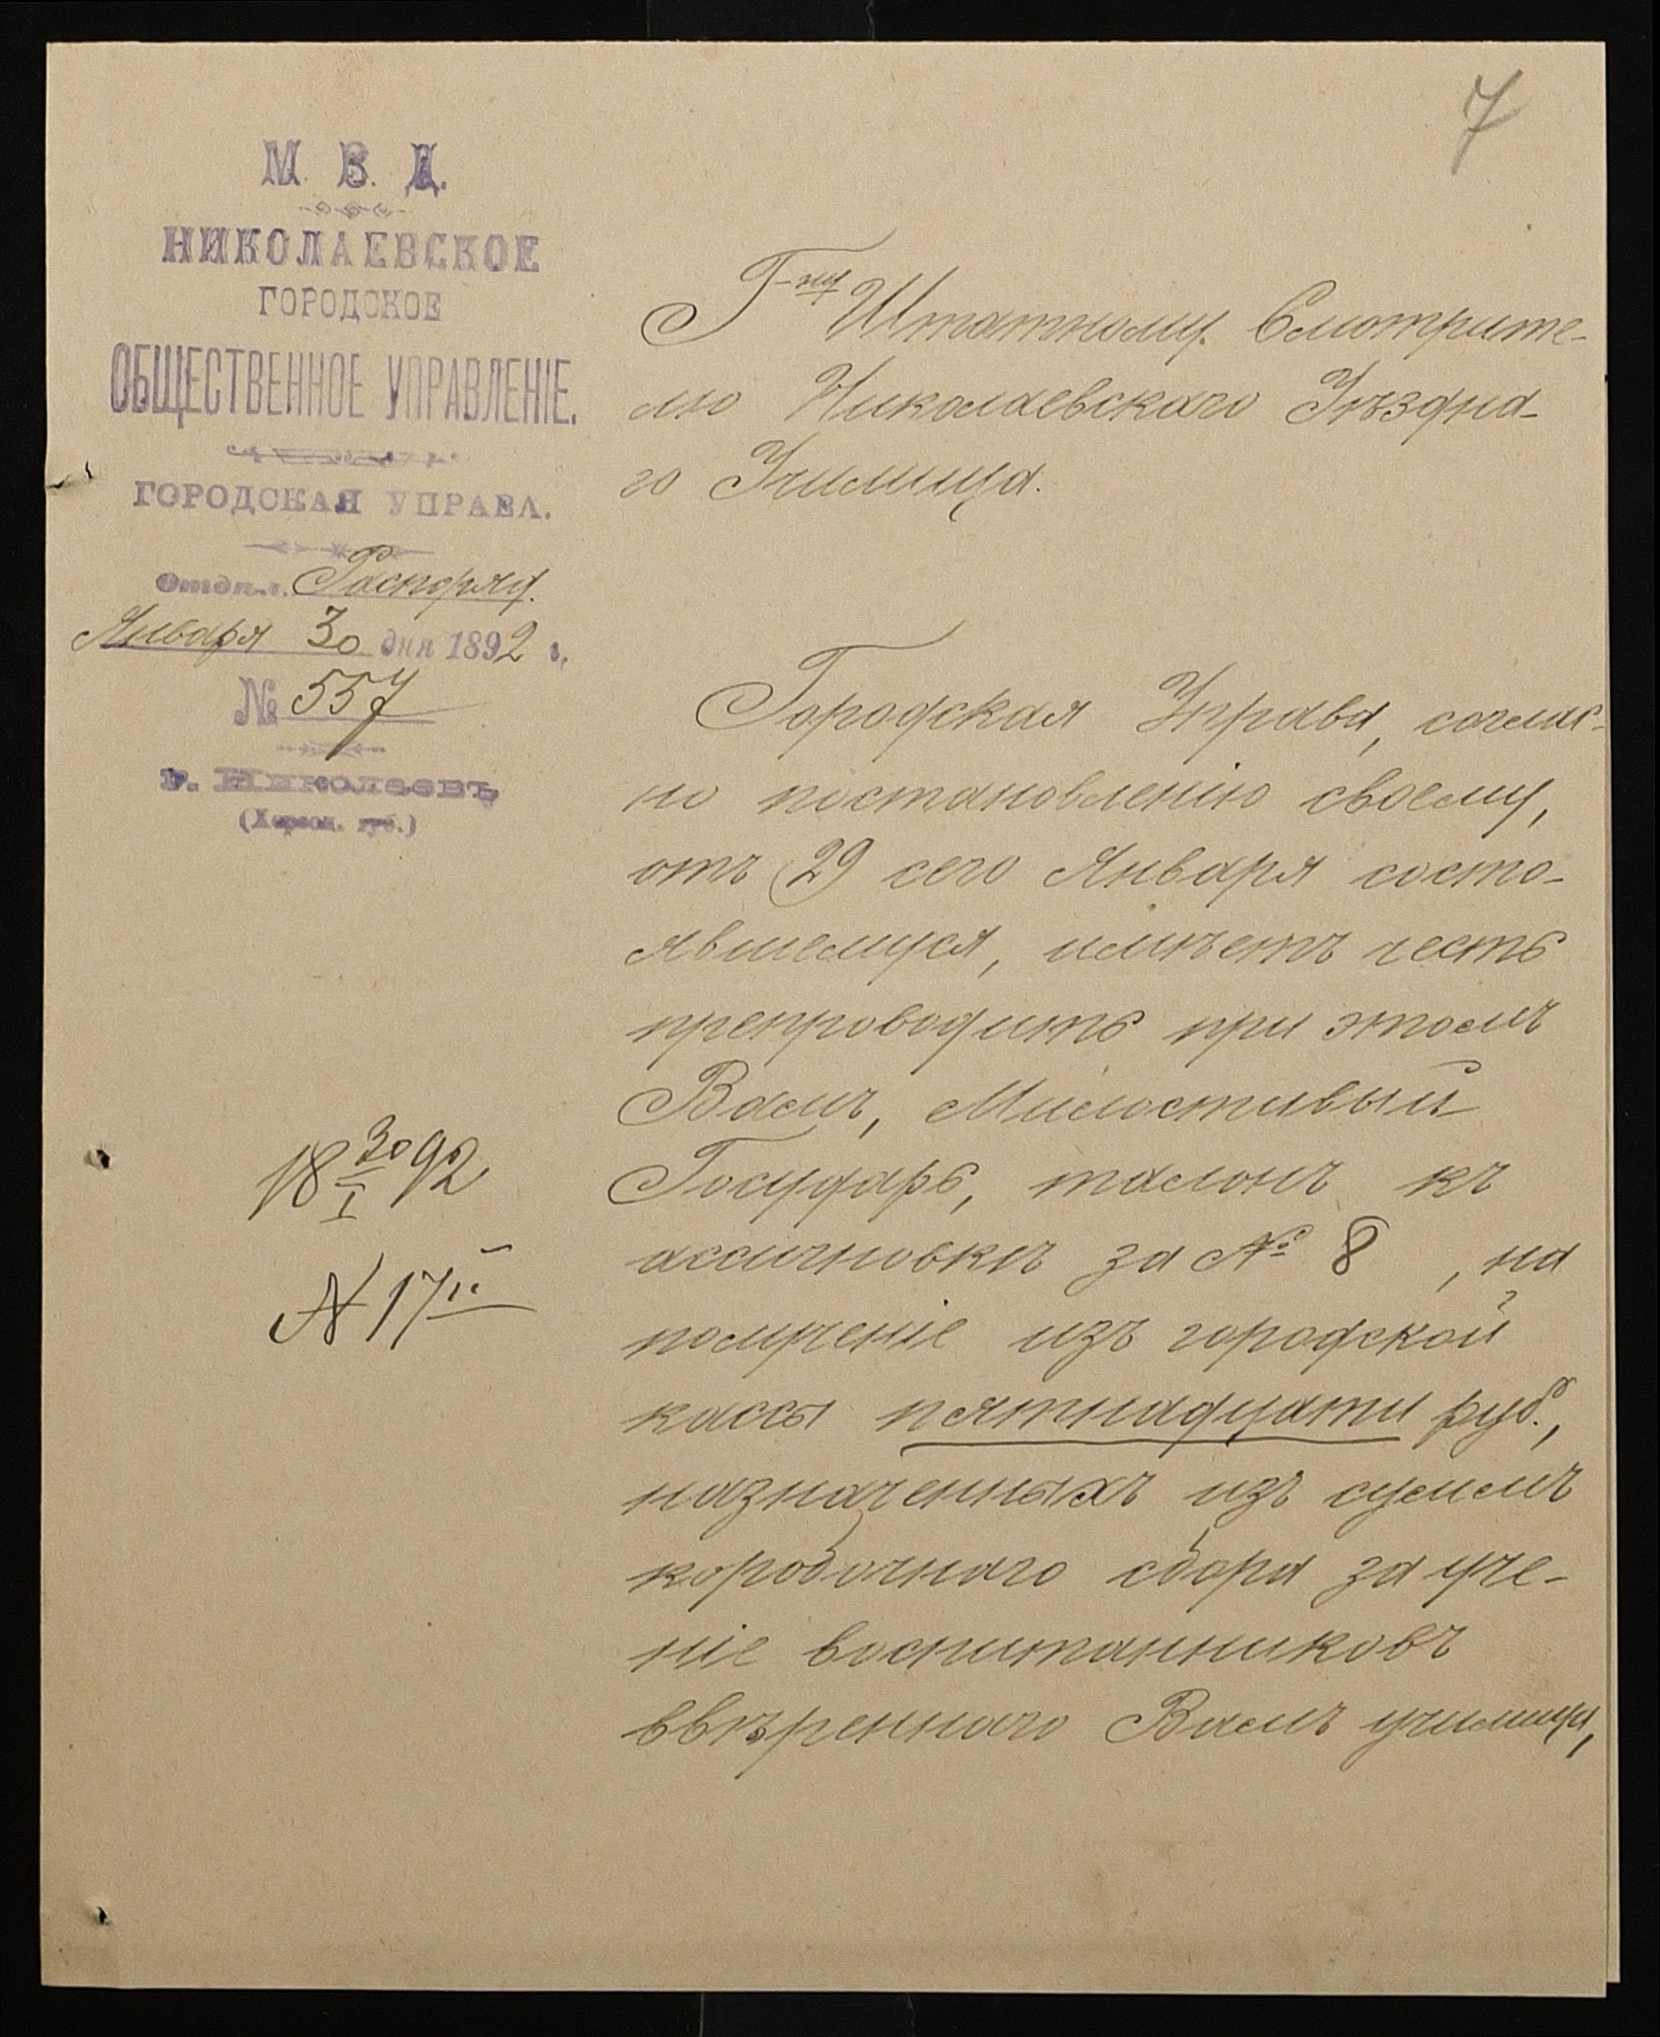 7
М. В. Д.
НИКОЛАЕВСКОЕ
ГОРОДСКОЕ
ОБЩЕСТВЕННОЕ УПРАВЛЕНІЕ.
ГОРОДСКАЯ УПРАВА.
Отдѣл. Распоряд.
Января 30 дня 1892 г.
№ 557
г. Николаевъ
(Херсон. губ.)
Г-ну Штатному Смотрите-
лю Николаевскаго Уѣздна-
го Училища.
Городская Управа, соглас-
но постановленію своему,
отъ 29 сего Января состо-
явшемуся, имѣетъ честь
препроводить при этомъ
Вамъ, Милостивый
Государь, талонъ къ
ассигновкѣ за № 8, на
полученіе изъ городской
кассы пятнадцати руб.,
назначенныхъ изъ суммъ
коробочнаго сбора за уче-
ніе воспитанниковъ
ввѣреннаго Вамъ училища,
18 30/I 92
N 17